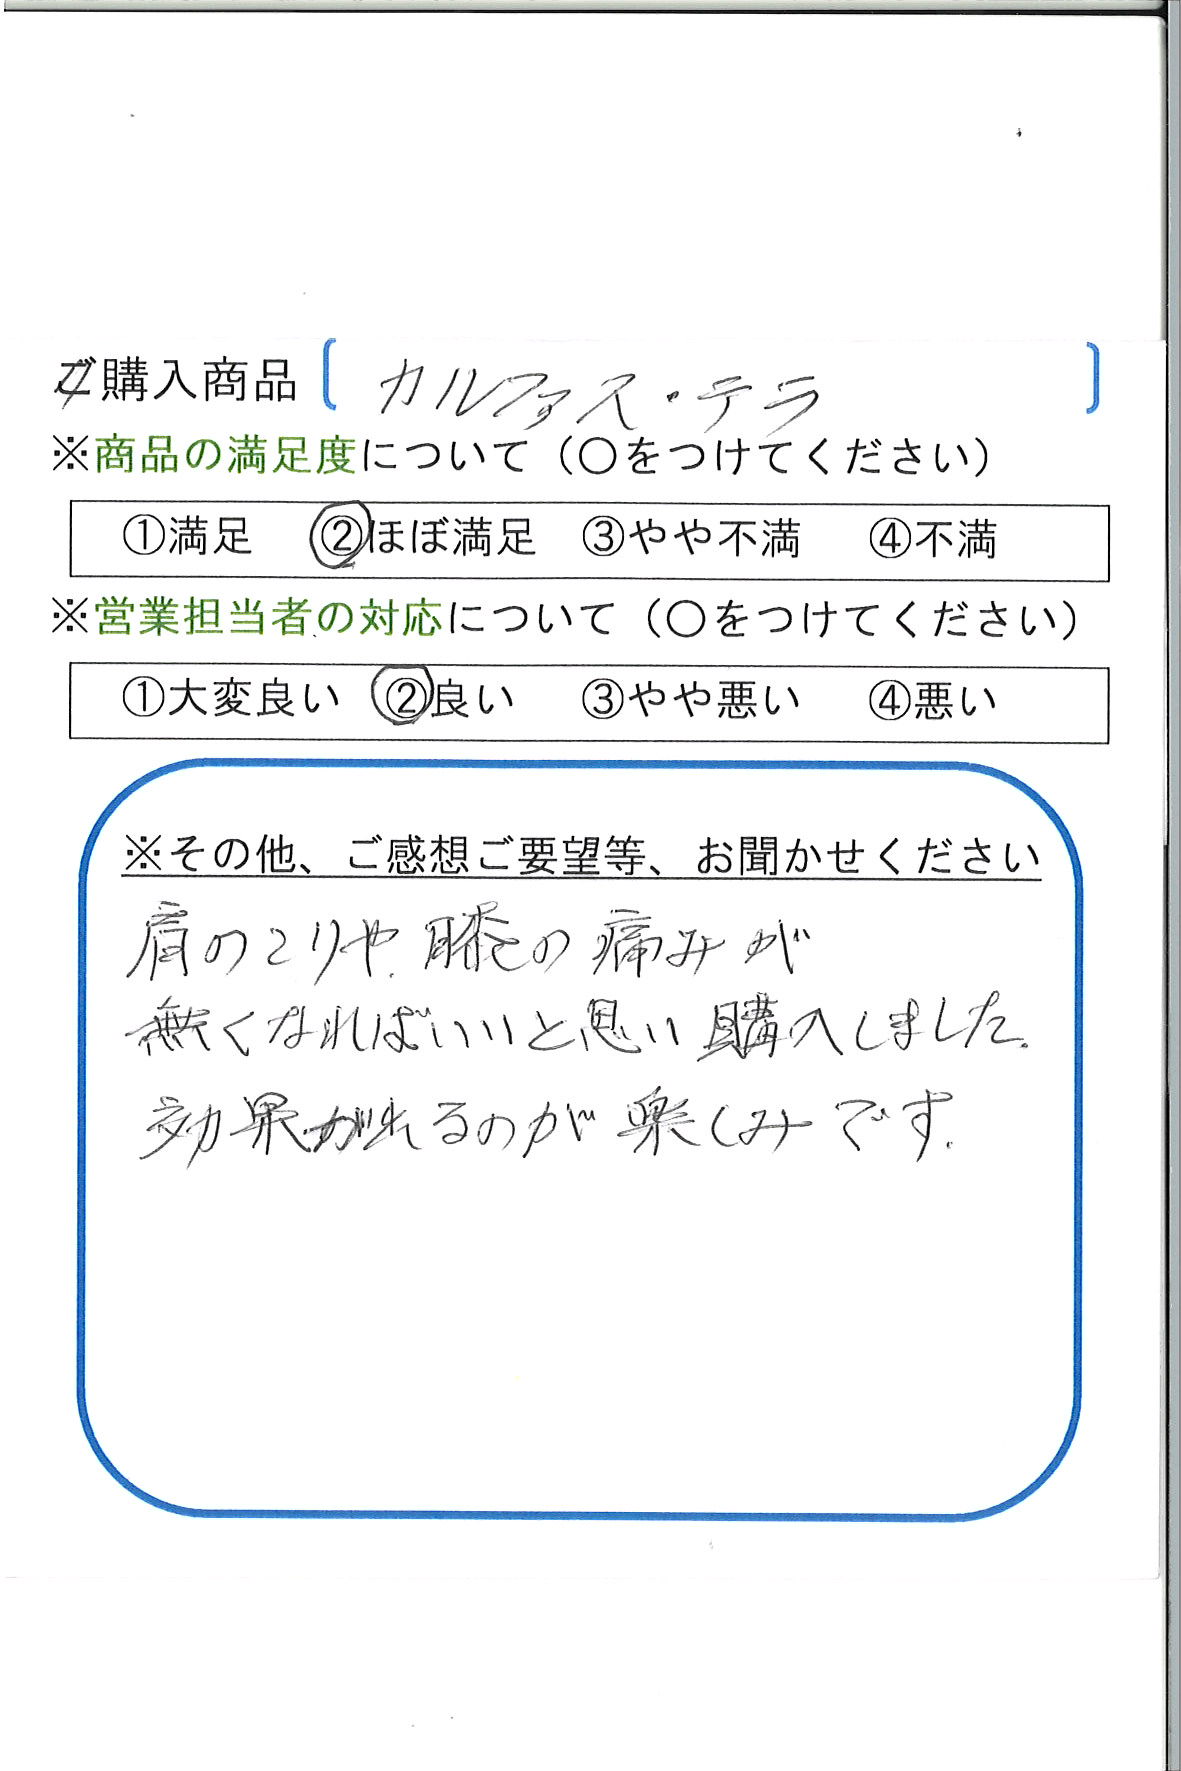 ご購入商品 [ カルファス・テラ ]
※商品の満足度について(○をつけてください)
①満足 ②ほぼ満足 ③やや不満 ④不満
※営業担当者の対応について(○をつけてください)
①大変良い ②良い ③やや悪い ④悪い
※その他、ご感想ご要望等、お聞かせください
肩のこりや、膝の痛みが
無くなればいいと思い購入しました。
効果がれるのが楽しみです。